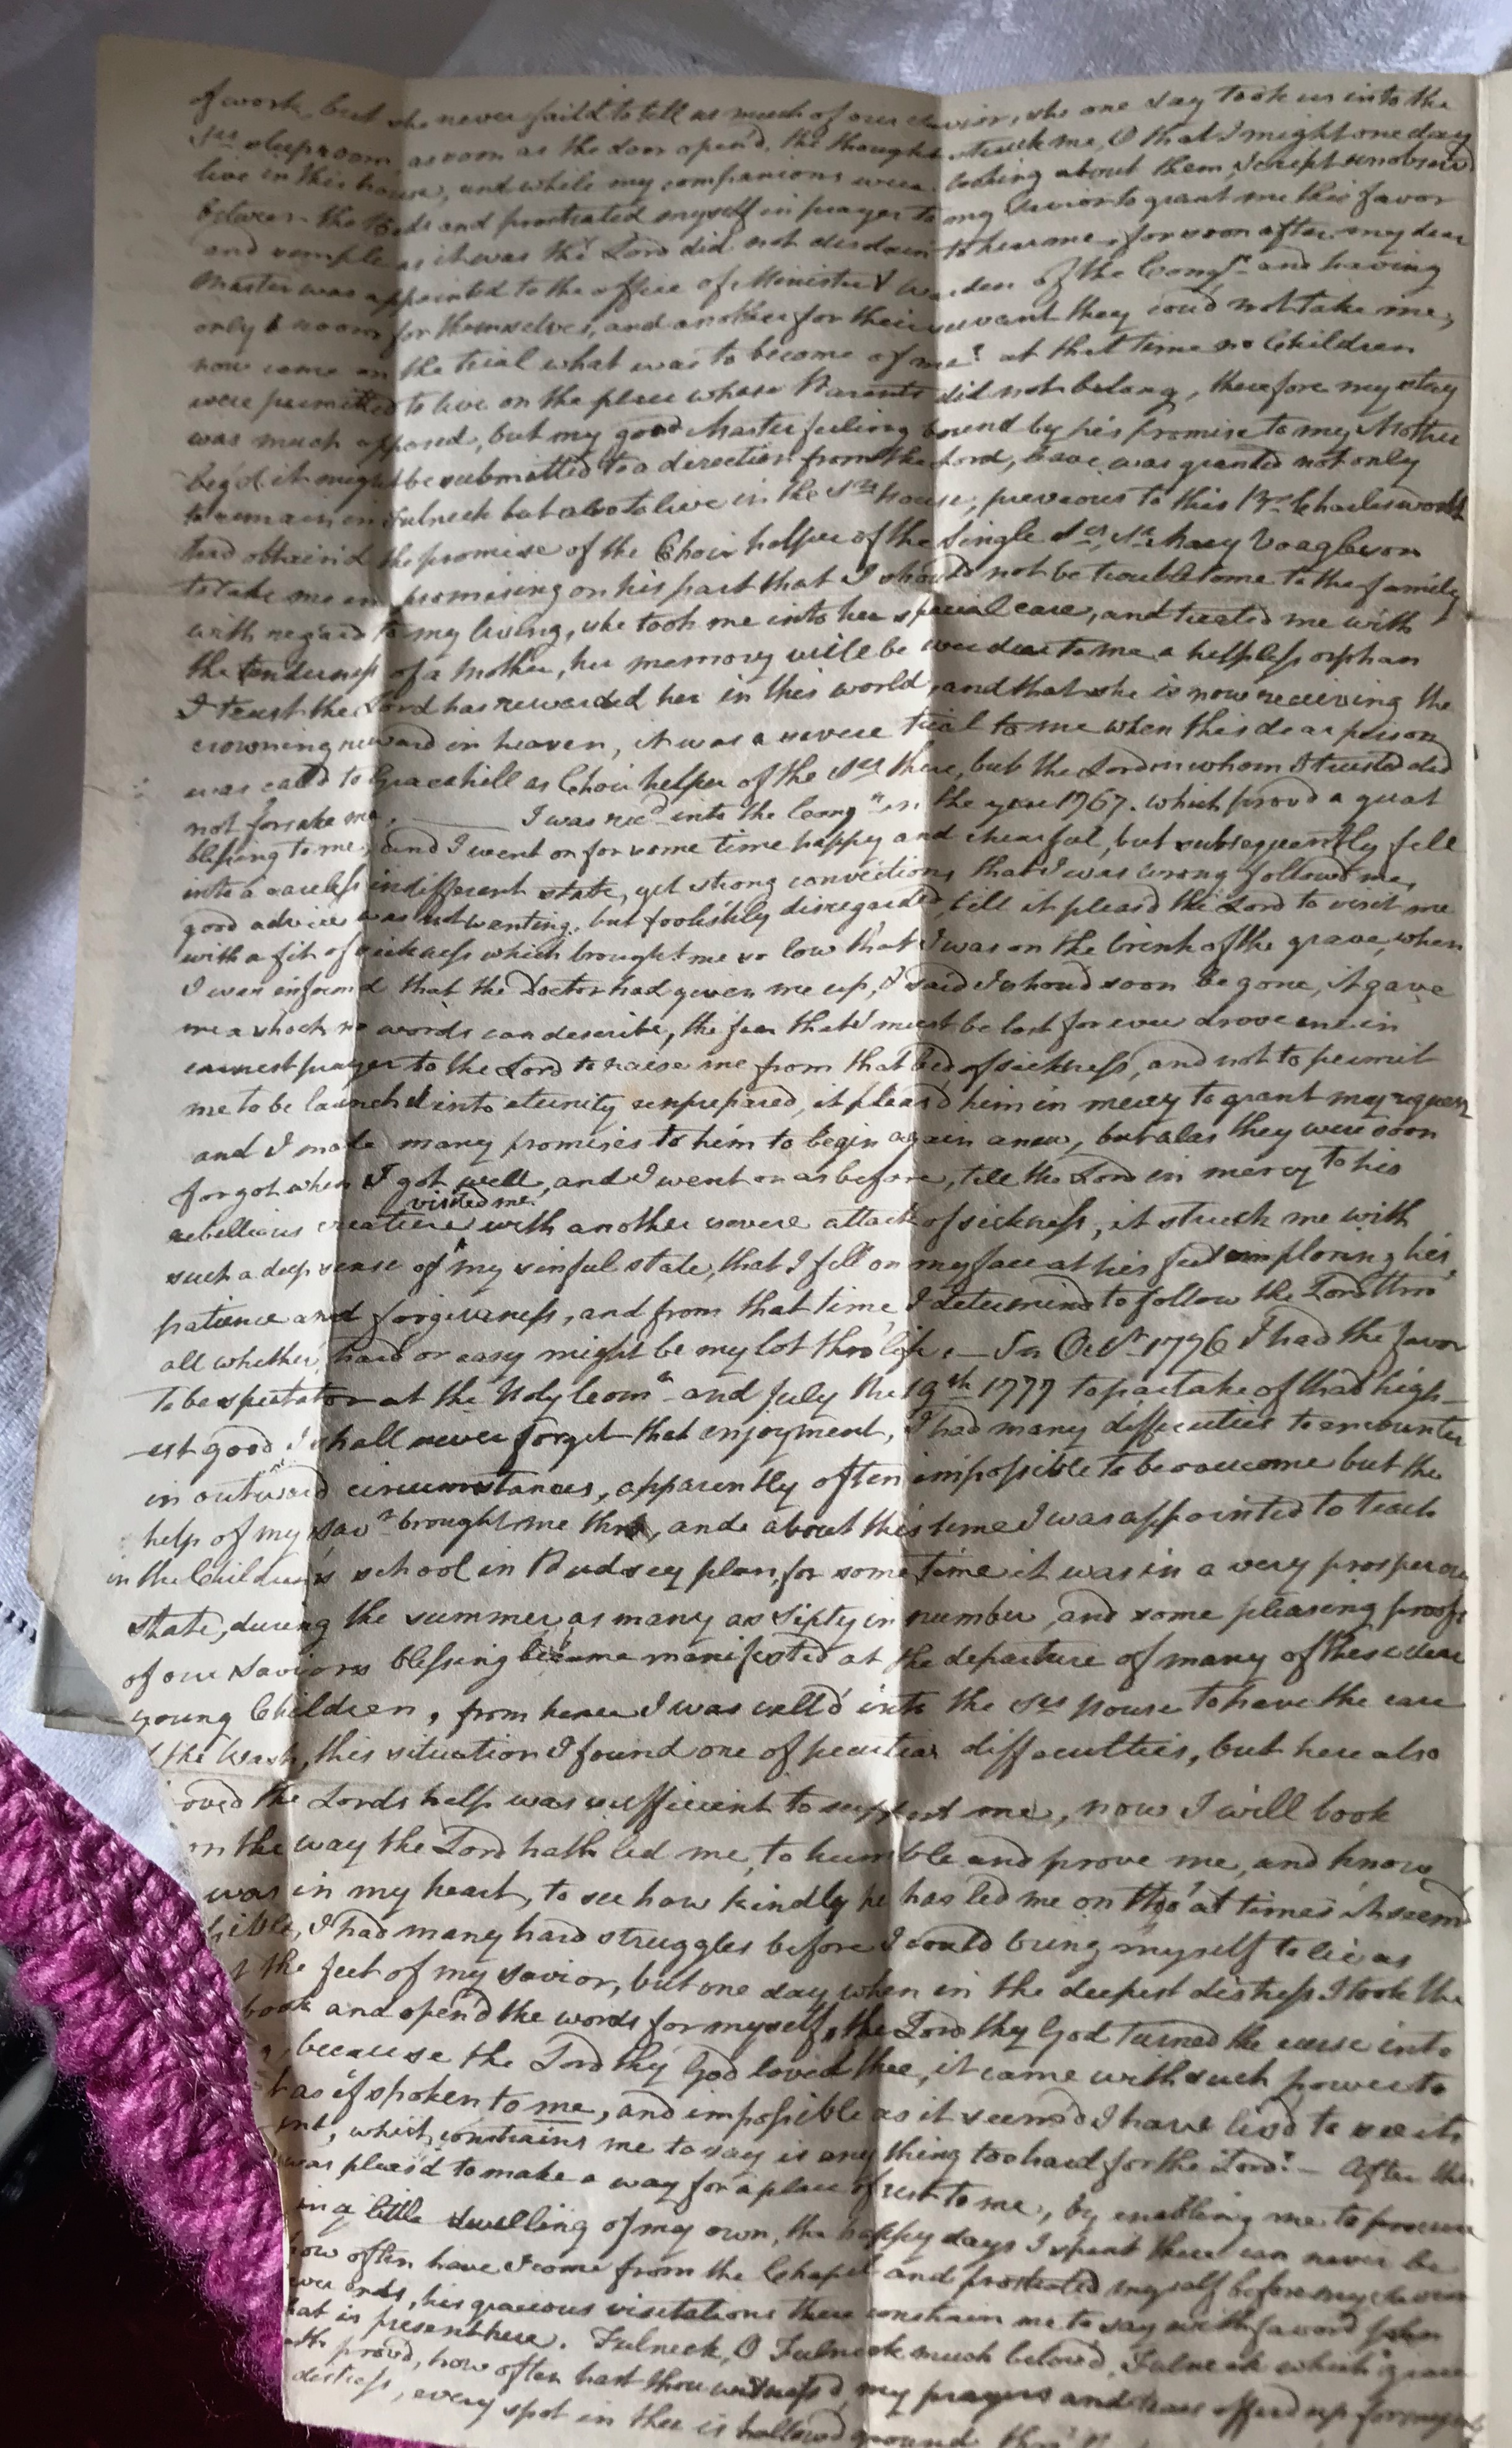 of work, but she never faild to tell us much of our Savior, she one day took us into the
Srs sleeproom, as soon as the door open'd, the thought struck me, O that I might one day
live in this house, and while my companions were looking about them, I crept unobserv'd
between the Beds and prostrated myself in prayer to my Savior to grant me this favor
and simple as it was the Lord did not disdain to hear me, for soon after my dear
Master was appointed to the office of Minister & Warden of the Congn. and having
only 1 room for themselves, and another for their servant they coud not take me,
now came on the trial what was to become of me? at that time no Children
were permitted to live on the place whose Parents did not belong, therefore my stay
was much opposed, but my good Master feeling bound by his promise to my Mother
beg'd it might be submitted to a direction from the Lord, leave was granted not only
to remain in Fulneck but also to live in the Srs house, previous to this Br. Charlesworth
had obtain'd the promise of the Choir helper of the Single Srs, Sr. Mary
to take me in promising on his part that I should not be troublesome to the family
with regard to my living, she took me into her special care, and treated me with
the tenderness of a Mother, her memory will be ever dear to me a helpless orphan
I trust the Lord has rewarded her in this world, and that she is now receiving the
crowning reward in heaven, it was a severe trial to me when this dear person
was calld to Gracehill as Choir helper of the Srs there, but the Lord in whom I trusted did
not forsake me. — I was recd. into the Congn in the year 1767. which provd a great
blessing to me, and I went on for some time happy and chearful, but subsequently fell
into a careless indifferent state, yet strong convictions that I was wrong followd me,
good advice was not wanting, but foolishly disregarded, till it pleasd the Lord to visit me
with a fit of sickness which brought me so low that I was on the brink of the grave, when
I was informd that the Doctor had given me up, & said I shoud soon be gone, it gave
me a shock no words can describe, the fear that I must be lost for ever drove me in
earnest prayer to the Lord to raise me from that bed of sickness, and not to permit
me to be launch'd into eternity unprepared, it pleasd him in mercy to grant my request
and I made many promises to him to begin again anew, but alas they were soon
forgot when I got well, and I went on as before, till the Lord in mercy to his
visited me
rebellious creature with another severe attack of sickness, it struck me with
such a deep sense of my sinful state, that I fell on my face at his feet imploring his
patience and forgiveness, and from that time I determind to follow the Lord thro'
all whether hard or easy might be my lot thro life. — In Octr. 1776 I had the favor
to be spectator at the Holy Comn. and July the 19th 1777 to partake of that high-
-est good I shall never forget that enjoyment, I had many difficulties to encounter
in outward circumstances, apparently often impossible to be overcome but the
help of my Savr. brought me thro, and about this time I was appointed to teach
in the Children's school in Pudsey plan, for some time it was in a very prosperous
state, during the summer, as many as sixty in number, and some pleasing proofs
of our Saviors blessing became manifested at the departure of many of these dear
young Children, from hence I was call'd into the Srs House to have the care
the Wash, this situation I found one of peculiar difficulties, but here also
oved the Lords help was sufficient to support me, now I will look
on the way the Lord hath led me, to humble and prove me, and know
was in my heart, to see how kindly he has led me on tho' at times it seemd
sible, I had many hard struggles before I could bring myself to lie as
the feet of my Savior, but one day when in the deepest distress I took the
book and open'd the words for myself, the Lord thy God turned the curse into
because the Lord thy God loved thee, it came with such power to
as if spoken to me, and impossible as it seem'd I have liv'd to see its
which constrains me to say is any thing too hard for the Lord? — After this
was pleas'd to make a way for a place of rest to me, by enabling me to procure
in a little dwelling of my own, the happy days I spent there can never be
how often have I come from the Chapel and prostrated myself before my
his gracious visitations there constrain me to say with favord
that is present here. Fulneck, O Fulneck much beloved, Fulneck which grace
provd, how often hast thou witness'd my prayers and tears offerd up for
distress, every spot in thee is hallowd ground